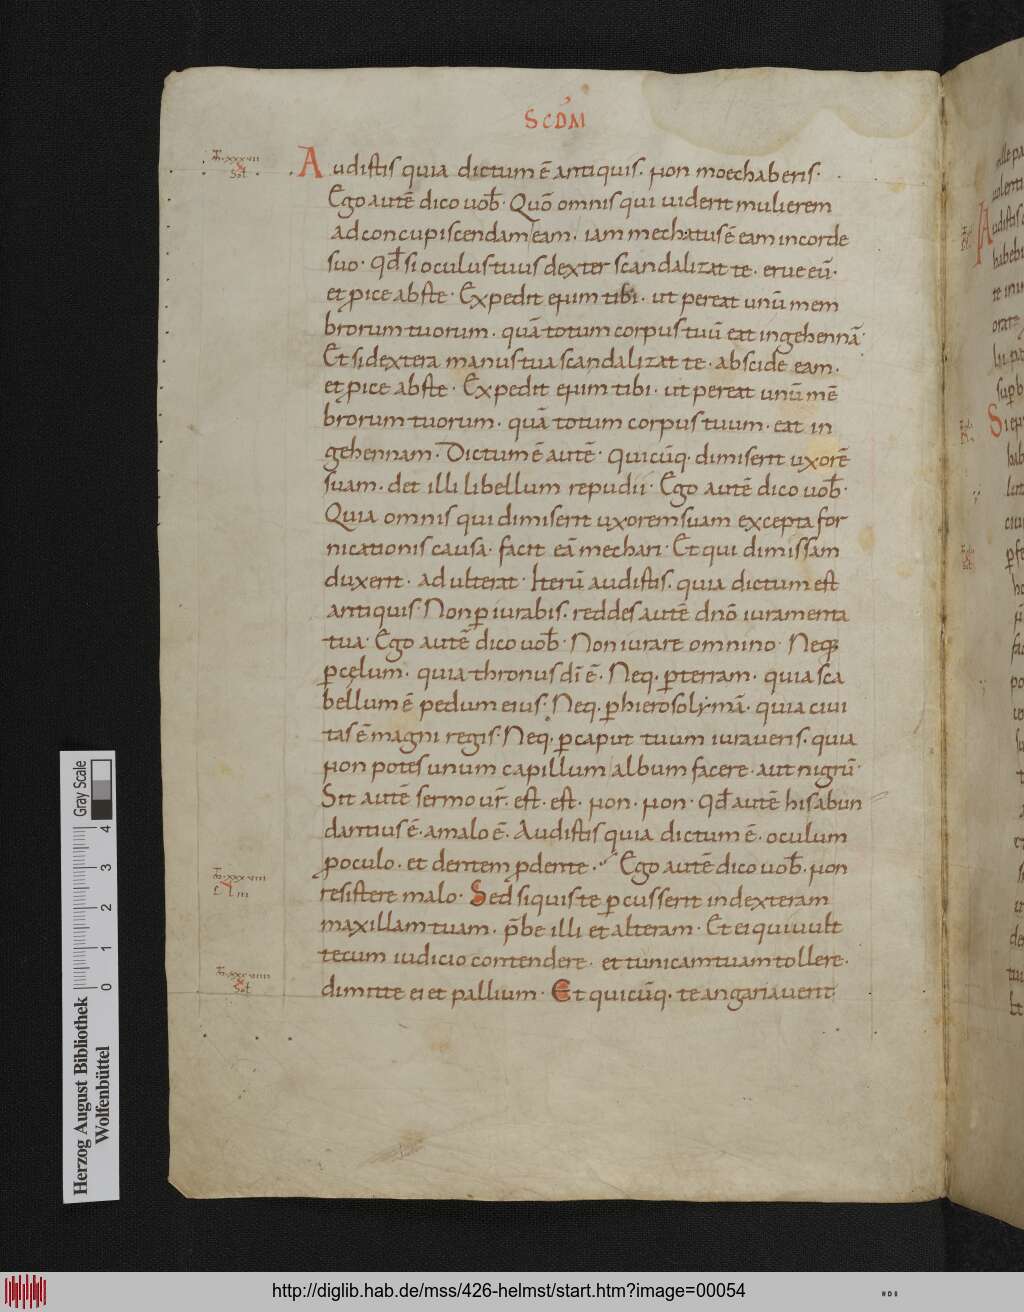 SCDM
Audistis quia dictum ē antiquis. non moechaberis.
Ego autē dico uob̄. Quō omnis qui uiderit mulierem
ad concupiscendam eam. iam mechatus ē eam in corde
suo. Qd̄ si oculus tuus dexter scandalizat te. erue eū.
et ꝓice abs te. Expedit enim tibi. ut pereat unū mem
brorum tuorum. quā totum corpus tuū eat in gehennā.
Et si dextera manus tua scandalizat te. abscide eam.
et ꝓice abs te. Expedit enim tibi. ut pereat unū mē
brorum tuorum. quā totum corpus tuum. eat in
gehennam. Dictum ē autē. quicūq. dimiserit uxorē
suam. det illi libellum repudii. Ego autē dico uob̄.
Quia omnis qui dimiserit uxorem suam excepta for
nicationis causa. facit eā mechari. Et qui dimissam
duxerit. adulterat. Iterū audistis. quia dictum est
antiquis. Non ꝑiurabis. reddes autē dnō iuramenta
tua. Ego autē dico uob̄. Non iurare omnino. Neq;
ꝑ cęlum. quia thronus dī ē. Neq. ꝑ terram. quia sca
bellum ē pedum eius. Neq. ꝑ hierosolymā. quia ciui
tas ē magni regis. Neq. ꝑ caput tuum iuraueris. quia
non potes unum capillum album facere. aut nigrū.
Sit autē sermo ur̄. est. est. non. non. Qd̄ autē his abun
dantius ē. a malo ē. Audistis quia dictum ē. oculum
ꝓ oculo. et dentem ꝓ dente. Ego autē dico uob̄. non
resistere malo. Sed si quis te ꝑcusserit in dexteram
maxillam tuam. p̄be illi et alteram. Et ei qui uult
tecum iudicio contendere. et tunicam tuam tollere.
dimitte ei et pallium. Et quicūq. te angariauerit
Gray Scale
0 1 2 3 4
Herzog August Bibliothek
Wolfenbüttel
http://diglib.hab.de/mss/426-helmst/start.htm?image=00054